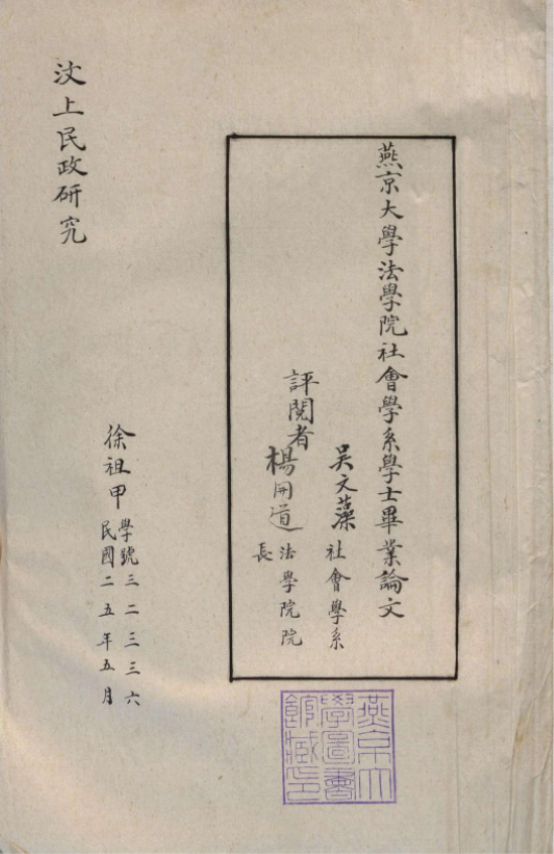 燕京大學法學院社會學系學士畢業論文
評閱者
吴文藻 社會學系
楊開道 法學院院長
燕京大學圖書館藏印
汶上民政研究
徐祖甲
學號三二三三六
民國二五年五月